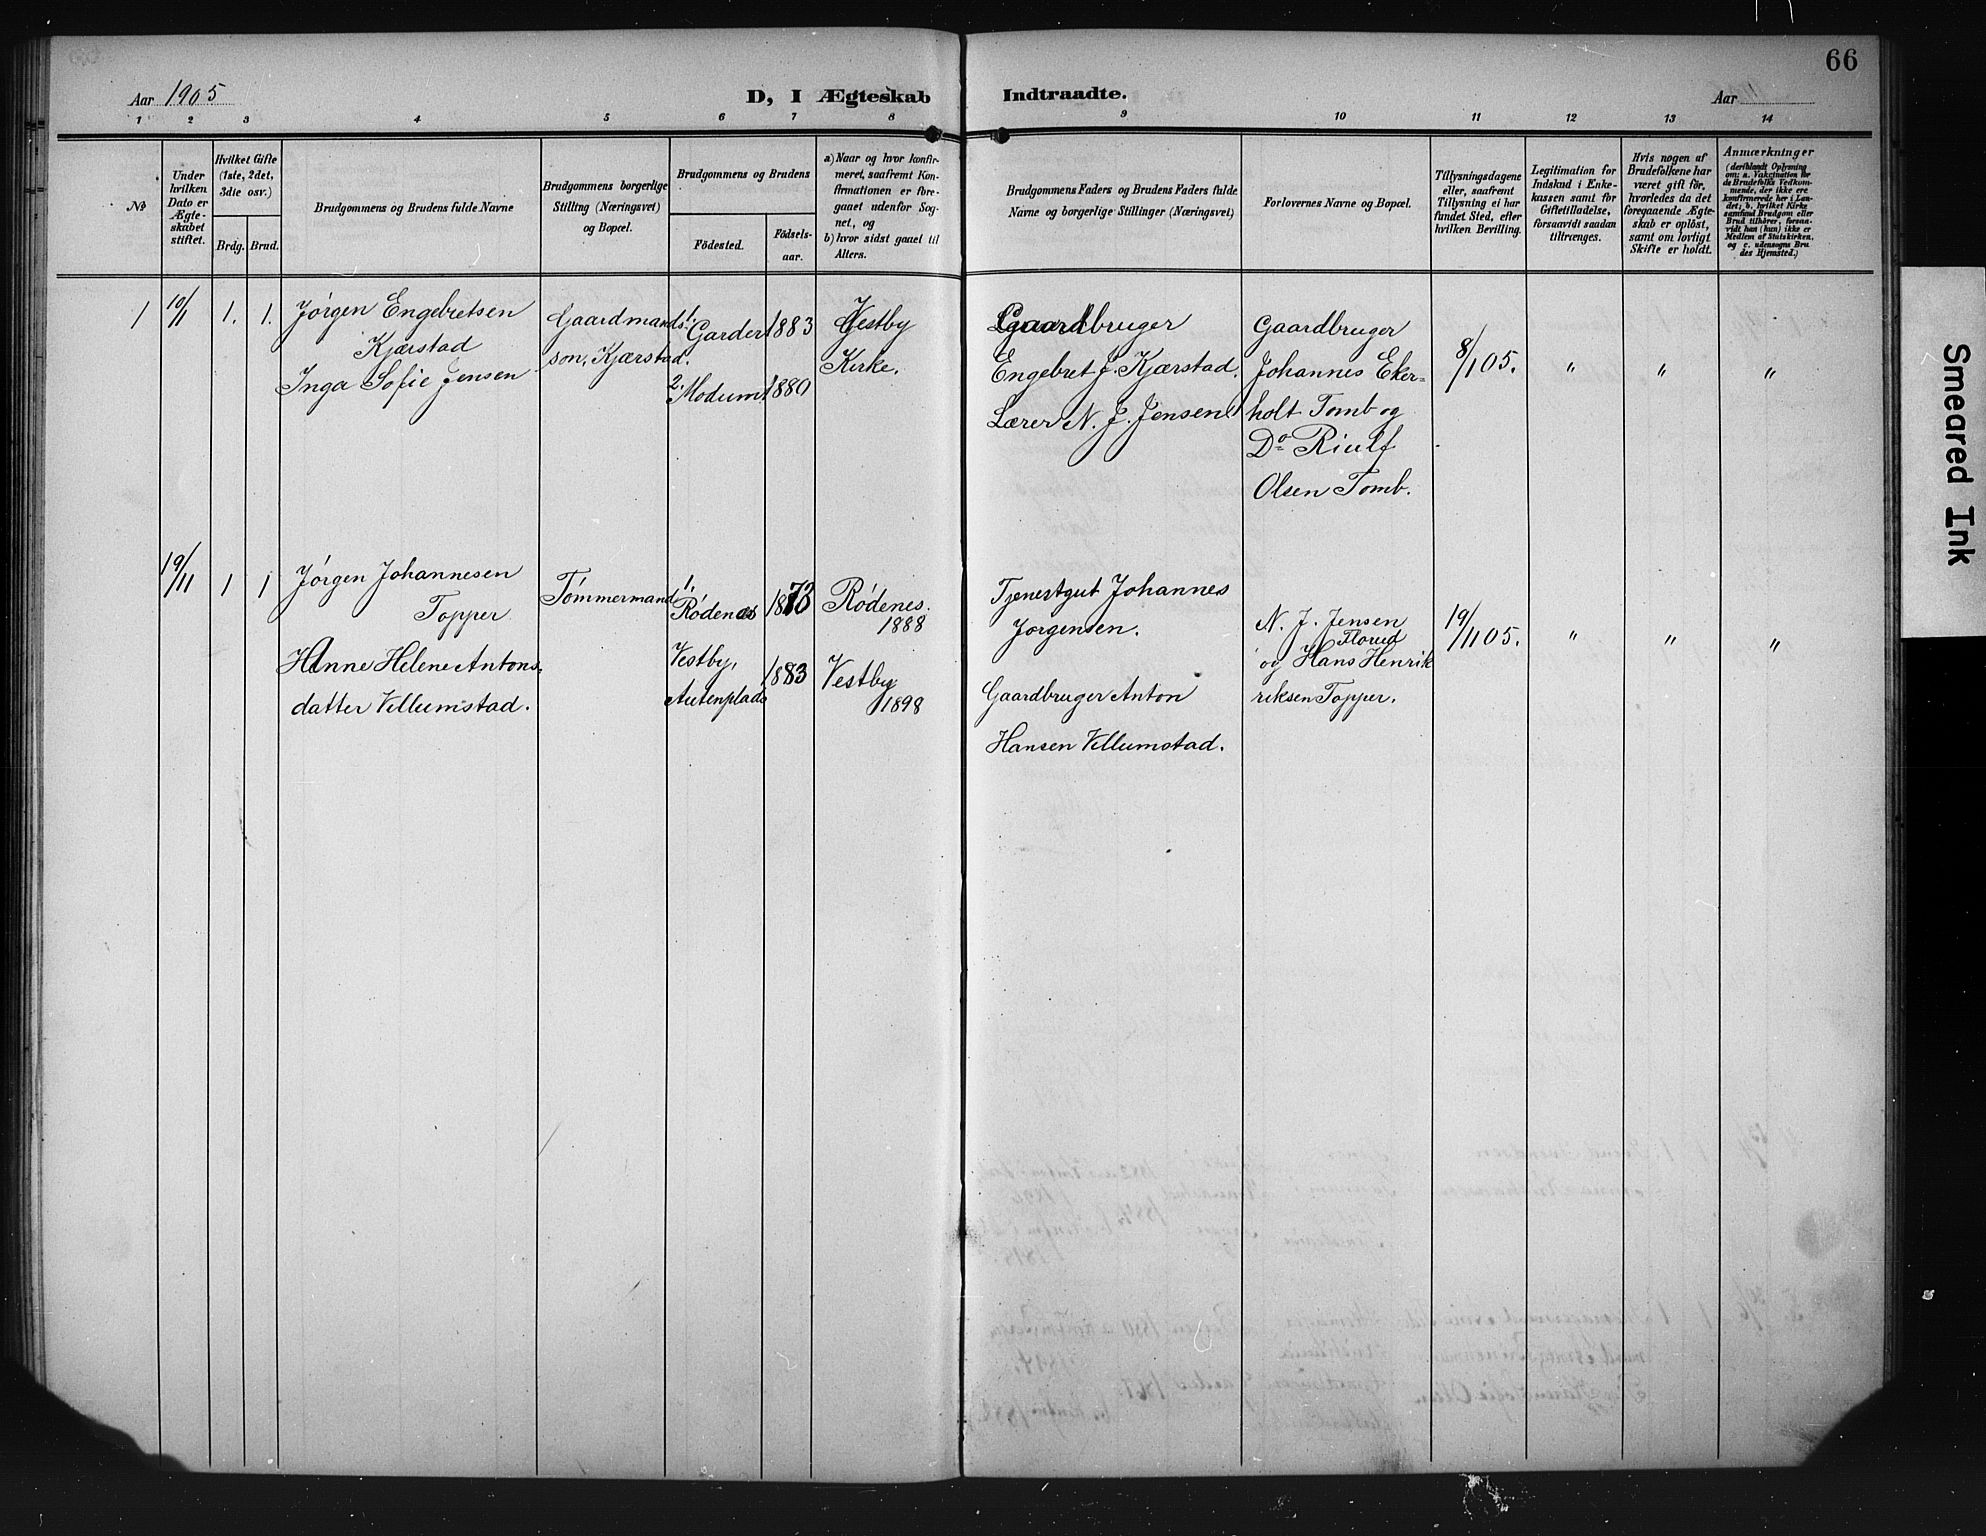 66
Aar 1905
D, I Ægteskab
Indtraadte.
Aar "
1 2 3 4 5 6 7 8
9 10 11 12 13 14
№
Under
hvilken
Dato er
Ægte-
skabet
stiftet.
Hvilket Gifte
(1ste, 2det,
3die osv.)
Brdg. Brud.
Brudgommens og Brudens fulde Navne
Brudgommens borgerlige
Stilling (Næringsvei)
og Bopæl.
Brudgommens og Brudens
Födested.
Födsels-
aar.
a) Naar og hvor konfir-
meret, saafremt Kon-
firmationen er fore-
gaaet udenfor Sog-
net, og
b) hvor sidst gaaet til
Alters.
Brudgommens Faders og Brudens Faders fulde
Navne og borgerlige Stillinger (Næringsvei)
Forlovernes Navne og Bopæl.
Tillysningsdagene
eller, saafremt
Tillysning ei har
fundet Sted, efter
hvilken Bevilling.
Legitimation for
Indskud i Enke-
kassen samt for
Giftetilladelse,
forsaavidt saadan
tiltrænges.
Hvis nogen af
Brudefolkene har
været gift før,
hvorledes da det
foregaaende Ægte-
skab er oplöst,
samt om lovligt
Skifte er holdt.
Anmærkninger
(deriblandt Oplysning
om: a. Vakcination for
de Brudefolks Vedkom-
mende, der ikke ere
konfirmerede her i Lan-
det; b. hvilket Kirke
samfund Brudgom eller
Brud tilhører, forsaa-
vidt han (hun) ikke er
Medlem af Statskirken,
og c. udensogns Bru
des Hjemsted.)
1
10/11
1. 1.
Jørgen Engebretsen
Kjærstad
Inga Sofie Jensen
Gaardmands-
søn, Kjærstad.
1. Garder
2. Modum
1883
1880
Vestby
Kirke.
Gaardbruger
Engebret J. Kjærstad.
Lærer N. J. Jensen
Gaardbruger
Johannes Eker-
holt Tomb og
Do Riulf
Olsen Tomb.
8/1 05.
" " "
19/11
1 1
Jørgen Johannesen
Topper
Hanne Helene Antons-
datter Villumstad.
Tømmermand
1.
Rødenes
Vestby,
Autenplads
1873
1883
Rødenes.
1888
Vestby
1898
Tjenestgut Johannes
Jørgensen.
Gaardbruger Anton
Hansen Villumstad.
N. J. Jensen
Florud
og Hans Henrik
riksen Topper.
19/11 05.
" " "
Smeared Ink